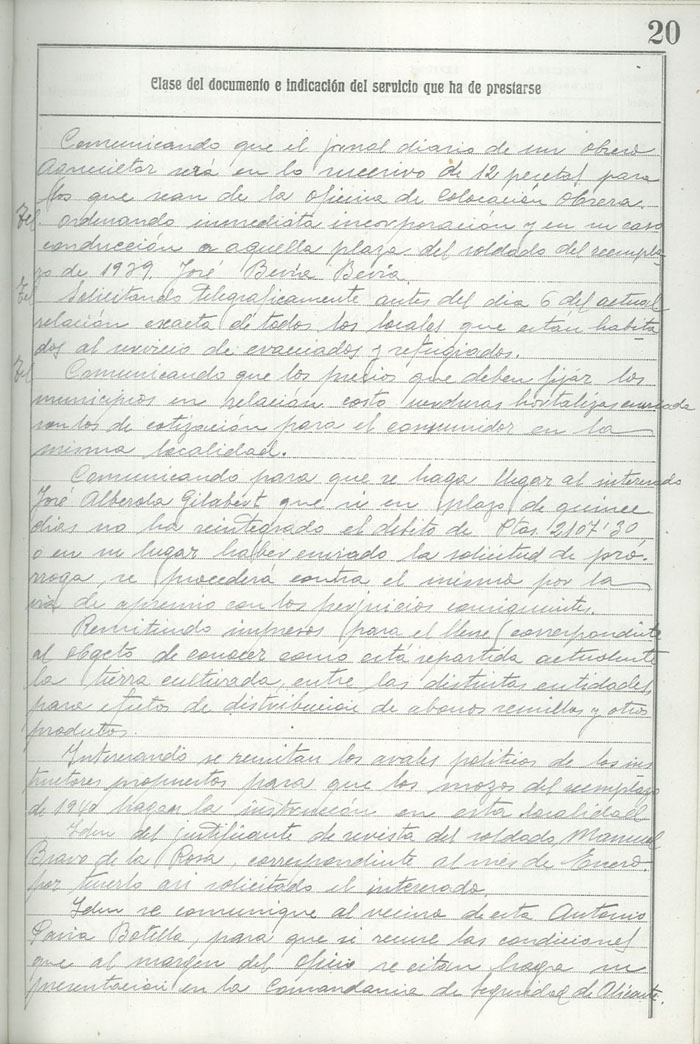 20
Clase del documento e indicación del servicio que ha de prestarse
Comunicando que el jornal diario de un obrero
será en lo sucesivo de 12 pesetas para
los que sean de la oficina de colocación obrera.
Tel. Ordenando inmediata incorporación y en su caso
conducción a aquella plaza del soldado del reempla
zo de 1939 José Bevia Bevia
Tel Solicitando telegraficamente antes del dia 6 del actual
relación exacta de todos los locales que están habita
dos al servicio de evacuados y refugiados.
Tel Comunicando que los precios que deben fijar los
municipios en relación costo verduras hortalizas
son los de cotización para el consumidor en la
misma localidad.
Comunicando para que se haga llegar al interesado
José Alberola Gilabert que si en plazo de quince
dias no ha reintegrado el débito de Ptas 2107'30
o en su lugar haber enviado la solicitud de pró-
rroga, se procederá contra el mismo por la
via de apremio con los perjuicios consiguientes.
Remitiendo impresos para el llene correspondiente
al objeto de conocer como está repartida actualmente
la tierra cultivada, entre las distintas entidades
para efectos de distribucion de abonos semillas y otros
productos.
Interesando se remitan los avales politicos de los ins
tructores propuestos para que los mozos del reemplazo
de 1940 hagan la instrucción en esta localidad
Idem del justificante de revista del soldado, Manuel
Bravo de la Rosa, correspondiente al mes de Enero.
por tuerlo asi solicitado el interesado.
Idem se comunique al vecino de esta Antonio
Botella, para que si reune las condiciones
que al margen del oficio se citan haga su
presentación en la Comandancia de Seguridad de Alicante.